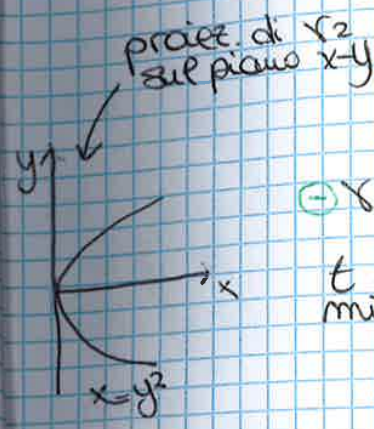 proiez. di γ2
sul piano x-y
y
x
x=y²
- γ
t
mi